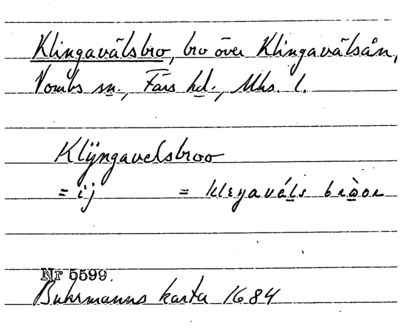 Klingavälsbro, bro över Klingavälsån,
Vombs sn., Färs hd., Mhs. l.
Klijngavelsbroo
= ij = kleŋaväls bròoe
Nr 5599.
Buhrmanns karta 1684